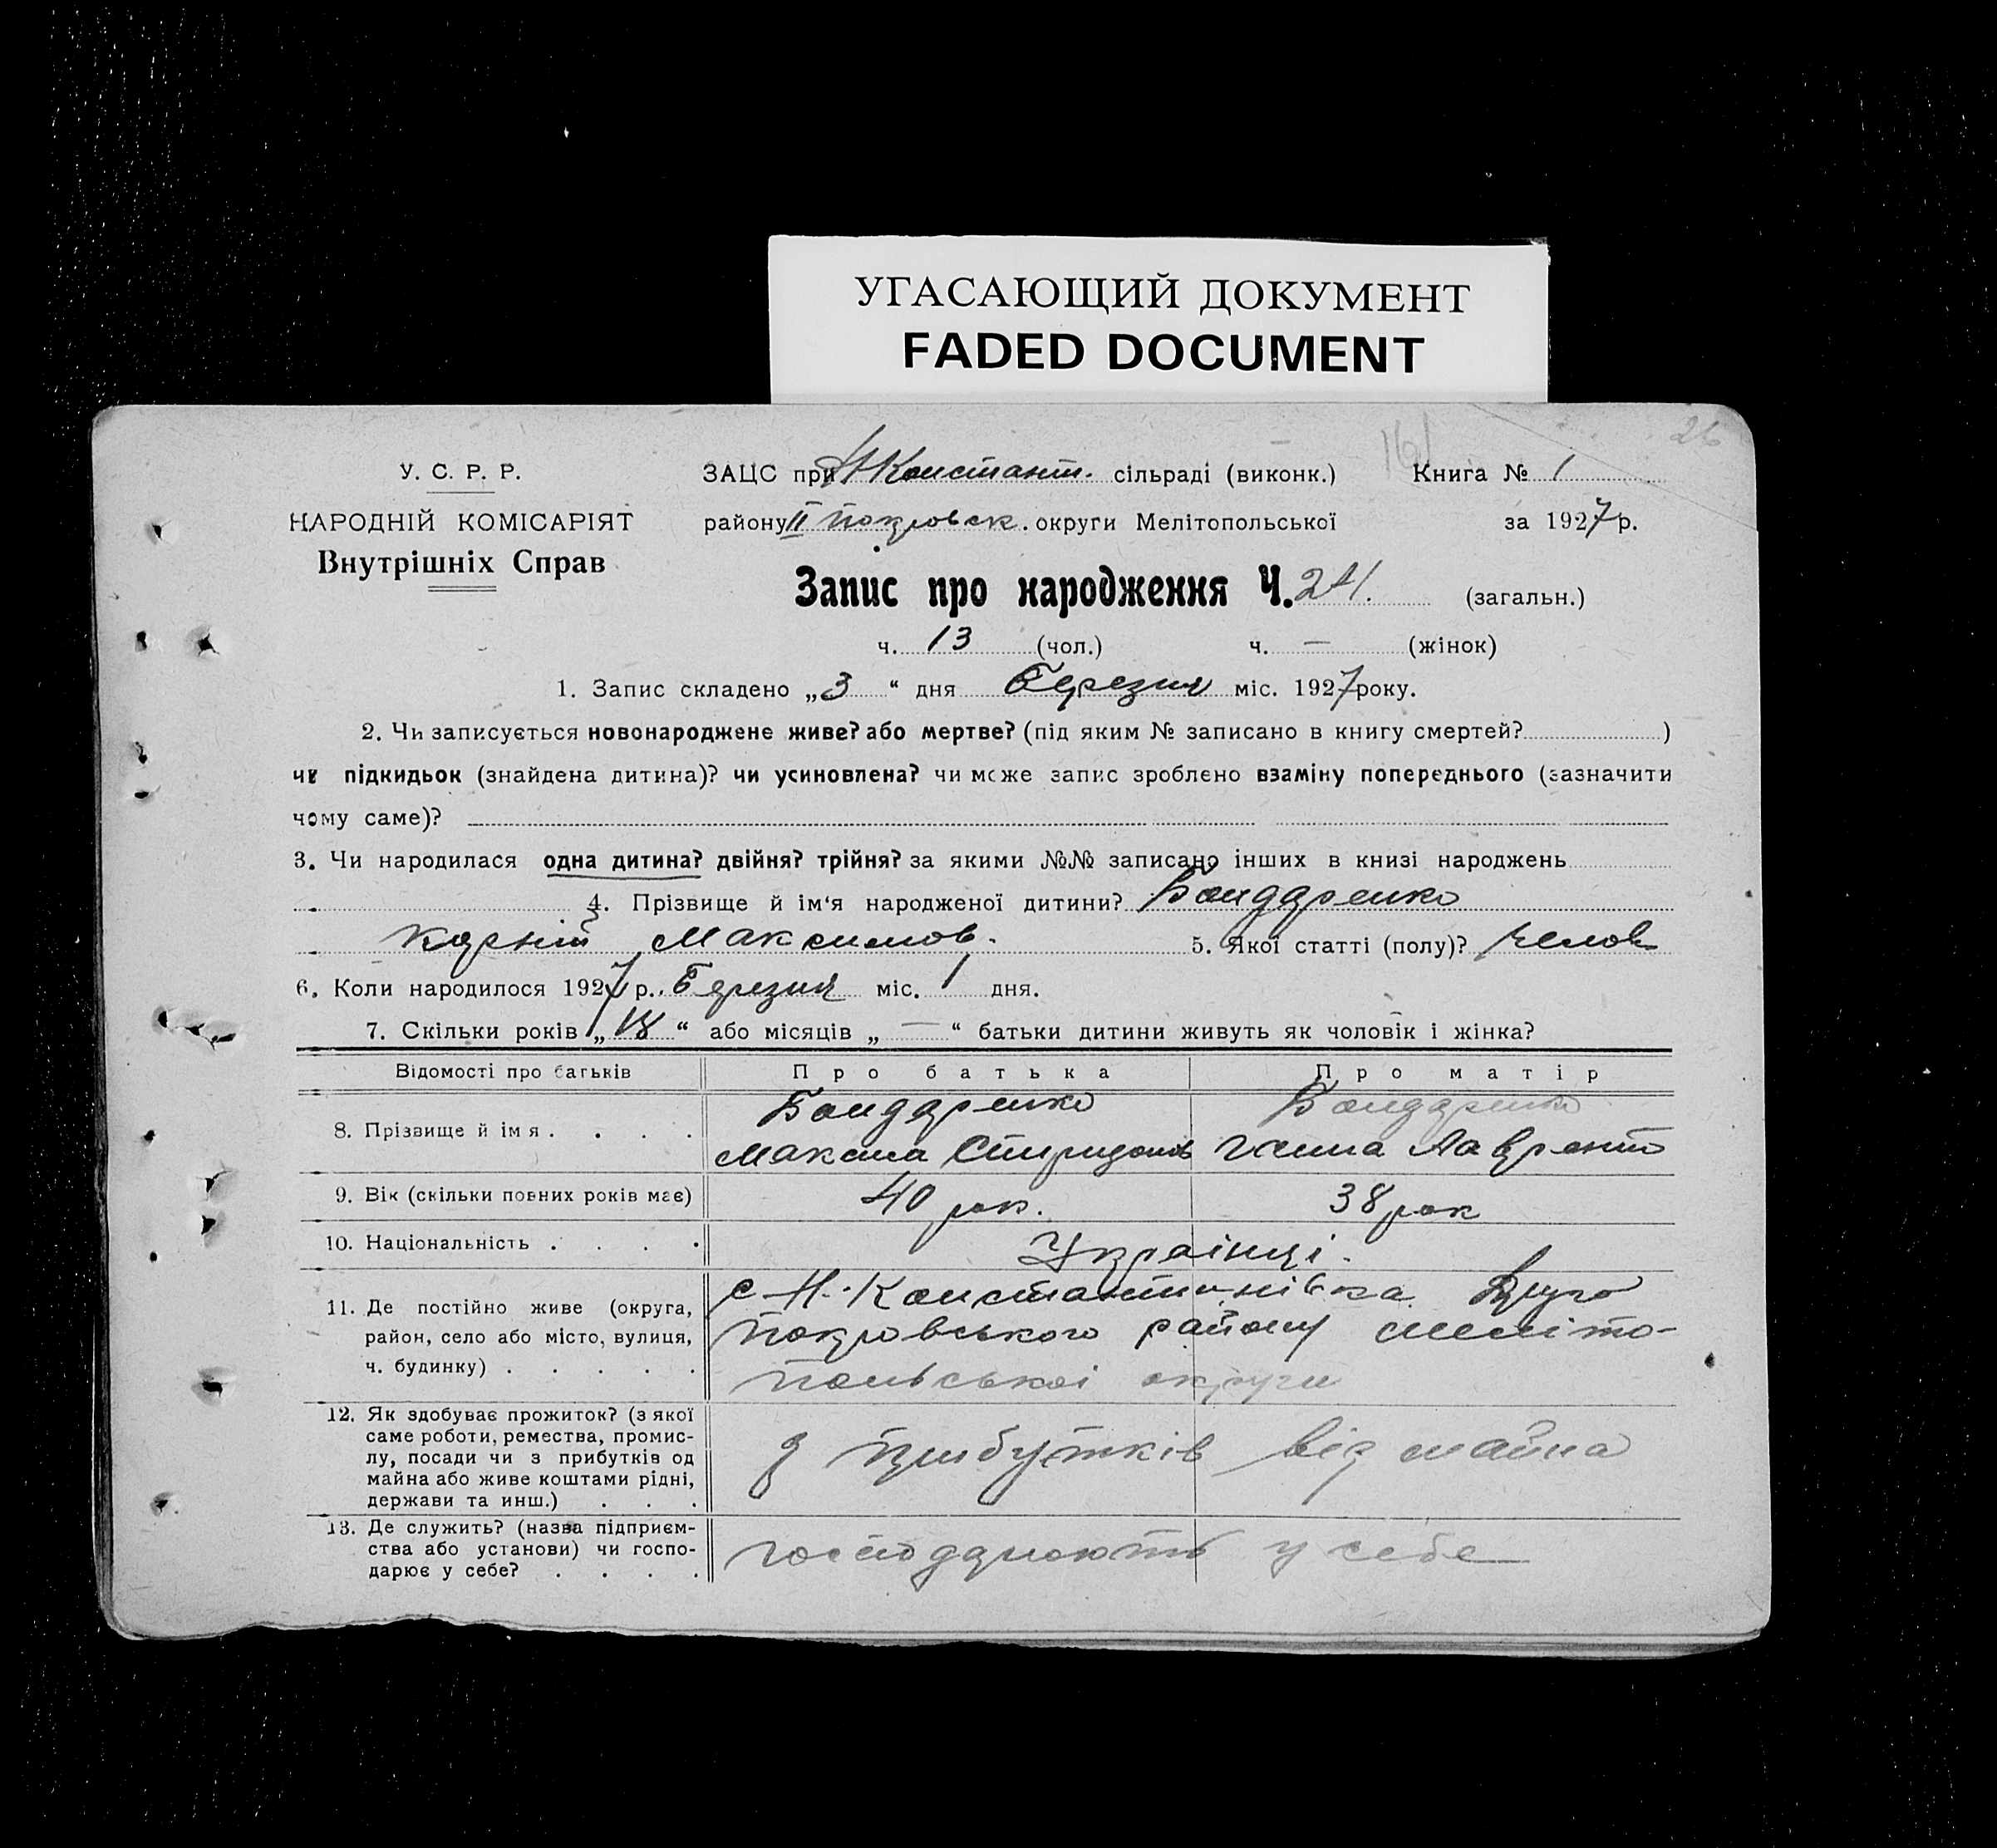 УГАСАЮЩИЙ ДОКУМЕНТ
FADED DOCUMENT
26
У. С. Р. Р.
НАРОДНІЙ КОМІСАРІЯТ
Внутрішніх Справ
ЗАЦС при Н Констант. сільраді (виконк.) Книга № 1
району II Покровськ. округи Мелітопольської за 1927 р.
Запис про народження Ч. 24. (загальн.)
ч. 13 (чол.) ч. — (жінок)
1. Запис складено „3“ дня Березня міс. 1927 року.
2. Чи записується новонароджене живе? або мертве? (під яким № записано в книгу смертей? )
чи підкидьок (знайдена дитина)? чи усиновлена? чи може запис зроблено взаміну попереднього (зазначити
чому саме)?
3. Чи народилася одна дитина? двійня? трійня? за якими №№ записано інших в книзі народжень
4. Прізвище й ім‘я народженої дитини? Бондаренко
Корній Максимов. 5. Якої статті (полу)? челов
6. Коли народилося 1927 р. Березня міс. 1 дня.
7. Скільки років „18“ або місяців „—“ батьки дитини живуть як чоловік і жінка?
Відомості про батьків Про батька Про матір
8. Прізвище й імя . . . . Бондаренко Бондаренко
Максим Спиридонов Ганна Лаврент
9. Вік (скільки повних років має) 40 рок. 38 рок
10. Національність . . . . Українці.
11. Де постійно живе (округа, с Н. Константинівка Друго
район, село або місто, вулиця, Покровського району Меліто-
ч. будинку) . . . . . польської округи
12. Як здобуває прожиток? (з якої
саме роботи, ремества, промис-
лу, посади чи з прибутків од з прибутків від майна
майна або живе коштами рідні,
держави та инш.) . . .
13. Де служить? (назва підприєм-
ства або установи) чи госпо- господарюють у себе
дарює у себе? . . . .